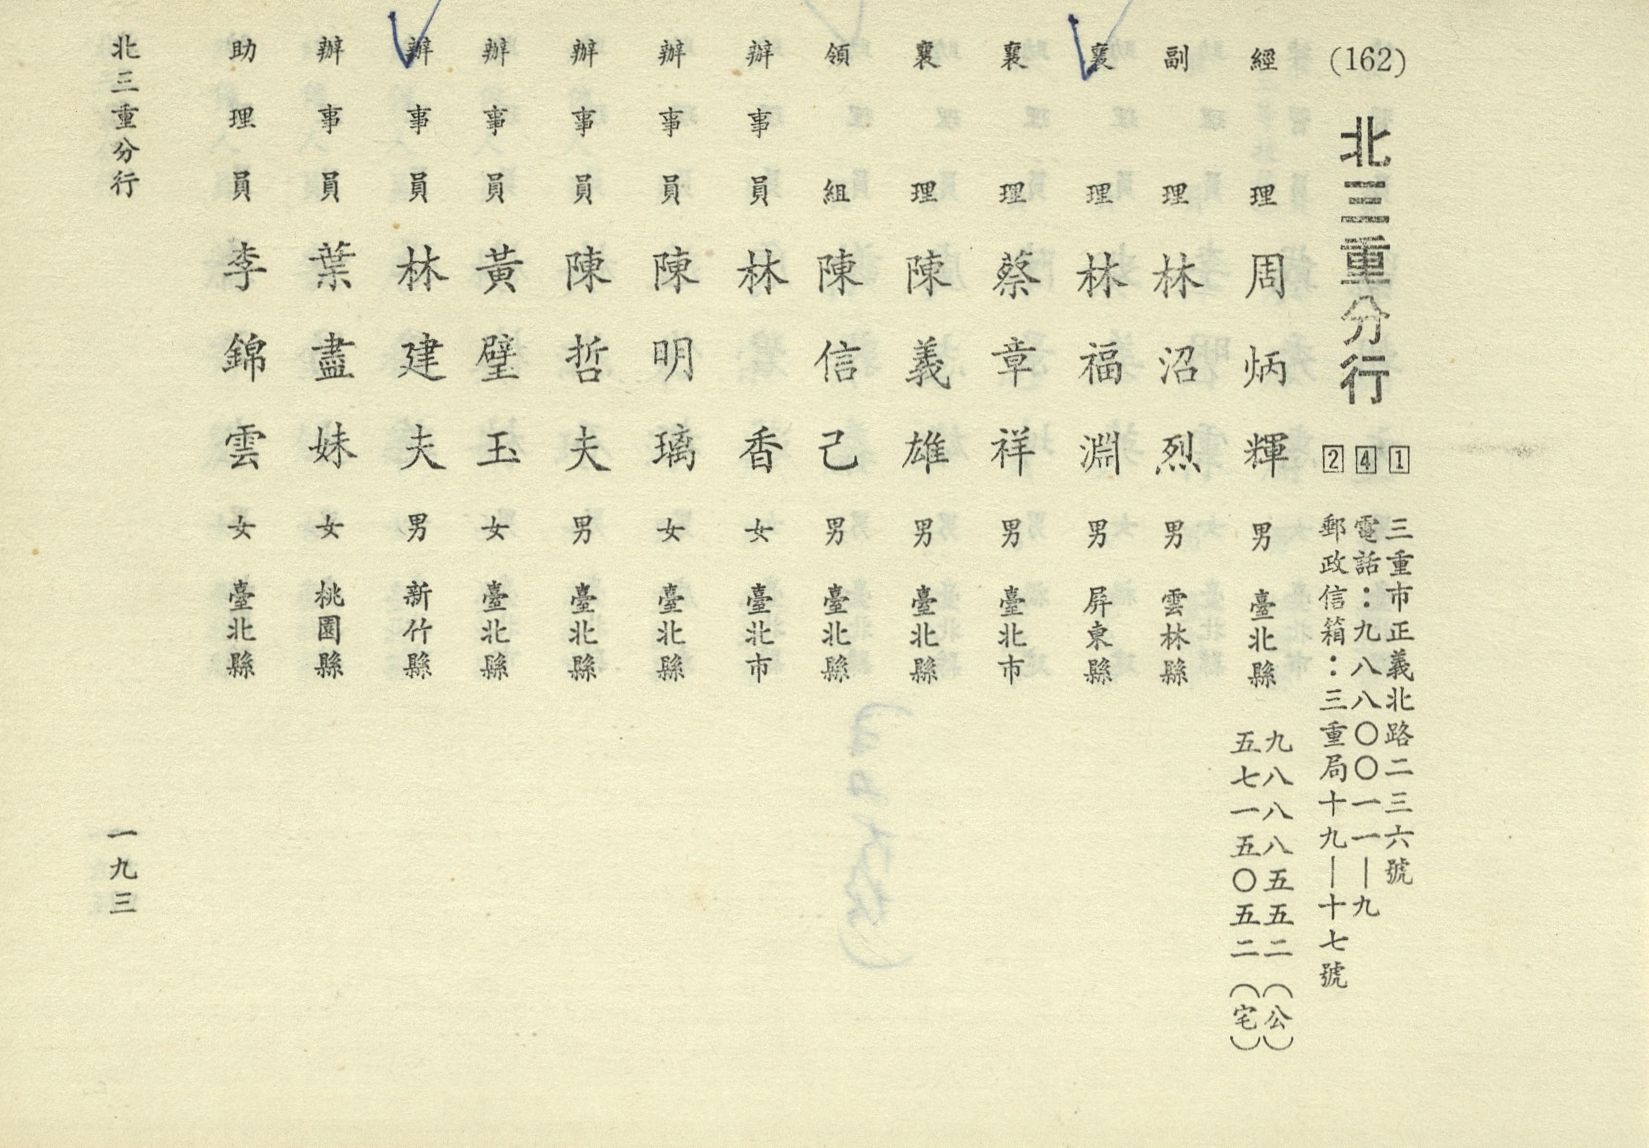 (162)
北三重分行
1 三重市正義北路二三六號
4 電話：九八八〇〇一一—九
2 郵政信箱：三重局十九—十七號
經理 周炳輝 男 臺北縣 九八八八五五二（公）
五七一五〇五二（宅）
副理 林沼烈 男 雲林縣
襄理 林福淵 男 屏東縣
襄理 蔡章祥 男 臺北市
襄理 陳義雄 男 臺北縣
領組 陳信己 男 臺北縣
辦事員 林香 女 臺北市
辦事員 陳明璃 女 臺北縣
辦事員 陳哲夫 男 臺北縣
辦事員 黃璧玉 女 臺北縣
辦事員 林建夫 男 新竹縣
辦事員 葉盡妹 女 桃園縣
助理員 李錦雲 女 臺北縣
北三重分行
一九三